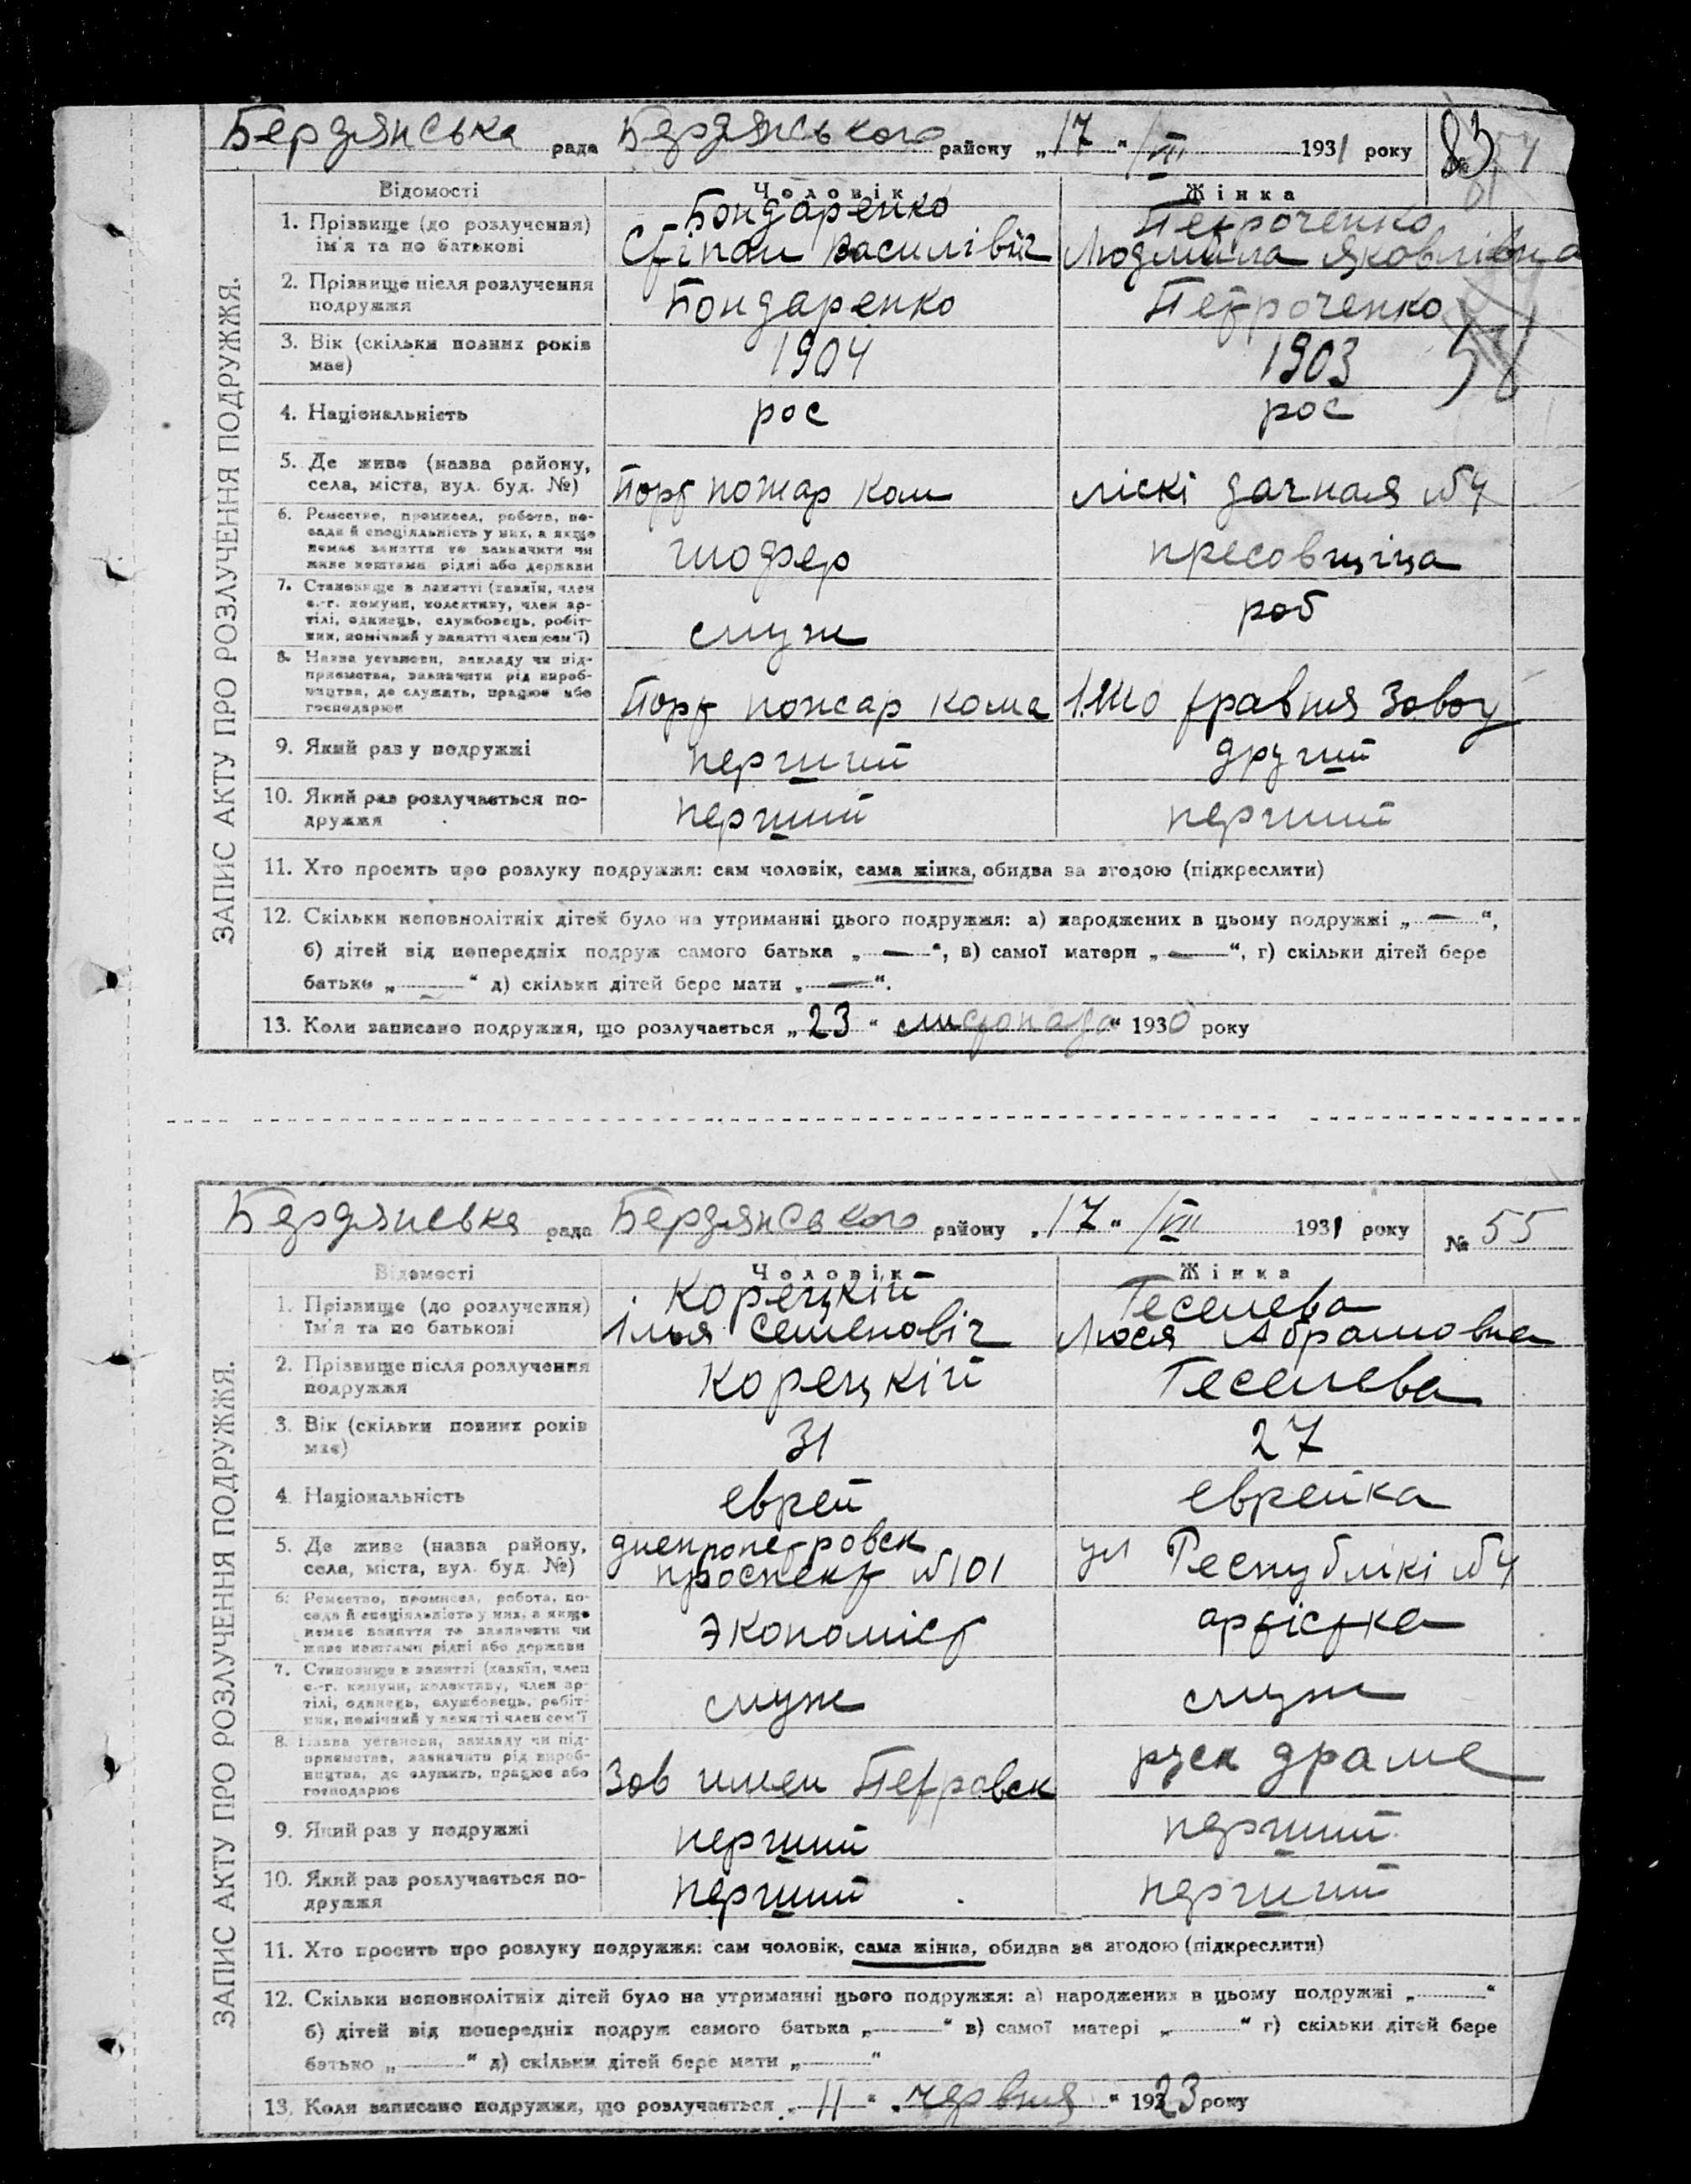 Бердянська рада Бердянського району „17“ VII 1931 року 83
ЗАПИС АКТУ ПРО РОЗЛУЧЕННЯ ПОДРУЖЖЯ.
Відомості Чоловік Жінка
1. Прізвище (до розлучення) ім'я та по батькові
Бондаренко
Степан Василівіч
Петроченко
Людмила Яковлівна
2. Прізвище після розлучення подружжя
Бондаренко Петроченко
3. Вік (скільки повних років має)
1904 1903 54
4. Національність
рос рос
5. Де живе (назва району, села, міста, вул. буд. №)
Порт пожар ком ліскі дачная №4
6. Ремество, промисел, робота, посада й спеціяльність у них, а якщо немає заняття то зазначити чи живе коштами рідні або держави
шофер пресовщіца
7. Становище в занятті (хазяїн, член с.-г. комуни, колективу, член артілі, одинець, службовець, робітник, помічний у занятті член сем'ї)
служ роб
8. Назва установи, закладу чи підприємства, зазначити рід виробництва, де служить, працює або господарює
Порт пожар кома 1.Шо травня Завод
9. Який раз у подружжі
перший другий
10. Який раз розлучається подружжя
перший перший
11. Хто просить про розлуку подружжя: сам чоловік, сама жінка, обидва за згодою (підкреслити)
12. Скільки неповнолітніх дітей було на утриманні цього подружжя: а) народжених в цьому подружжі „—“,
б) дітей від попередніх подруж самого батька „—“, в) самої матери „—“, г) скільки дітей бере
батько „—“ д) скільки дітей бере мати „—“.
13. Коли записано подружжя, що розлучається „23“ листопада“ 1930 року
Бердянська рада Бердянського району „17“ VII 1931 року № 55
ЗАПИС АКТУ ПРО РОЗЛУЧЕННЯ ПОДРУЖЖЯ.
Відомості Чоловік Жінка
1. Прізвище (до розлучення) Ім'я та по батькові
Корецкій
Ілья Семеновіч
Геселева
Люся Абрамовна
2. Прізвище після розлучення подружжя
Корецкій Геселева
3. Вік (скільки повних років має)
31 27
4. Національність
еврей еврейка
5. Де живе (назва району, села, міста, вул. буд. №)
днепропетровск
проспект №101
ул Республікі №4
6. Ремество, промисел, робота, посада й спеціяльність у них, а якщо немає заняття то зазначити чи живе коштами рідні або держави
Экономіст артістка
7. Становище в занятті (хазяїн, член с.-г. комуни, колективу, член артілі, одинець, службовець, робітник, помічний у занятті член сем'ї
служ служ
8. Назва установи, закладу чи підприємства, зазначити рід виробництва, де служить, працює або господарює
Зав имен Петровск руск драме
9. Який раз у подружжі
перший перший
10. Який раз розлучається подружжя
перший перший
11. Хто просить про розлуку подружжя: сам чоловік, сама жінка, обидва за згодою (підкреслити)
12. Скільки неповнолітніх дітей було на утриманні цього подружжя: а) народжених в цьому подружжі „“
б) дітей від попередніх подруж самого батька „“ в) самої матері „“ г) скільки дітей бере
батько „“ д) скільки дітей бере мати „“
13. Коли записано подружжя, що розлучається „11“ „червня“ 1923 року